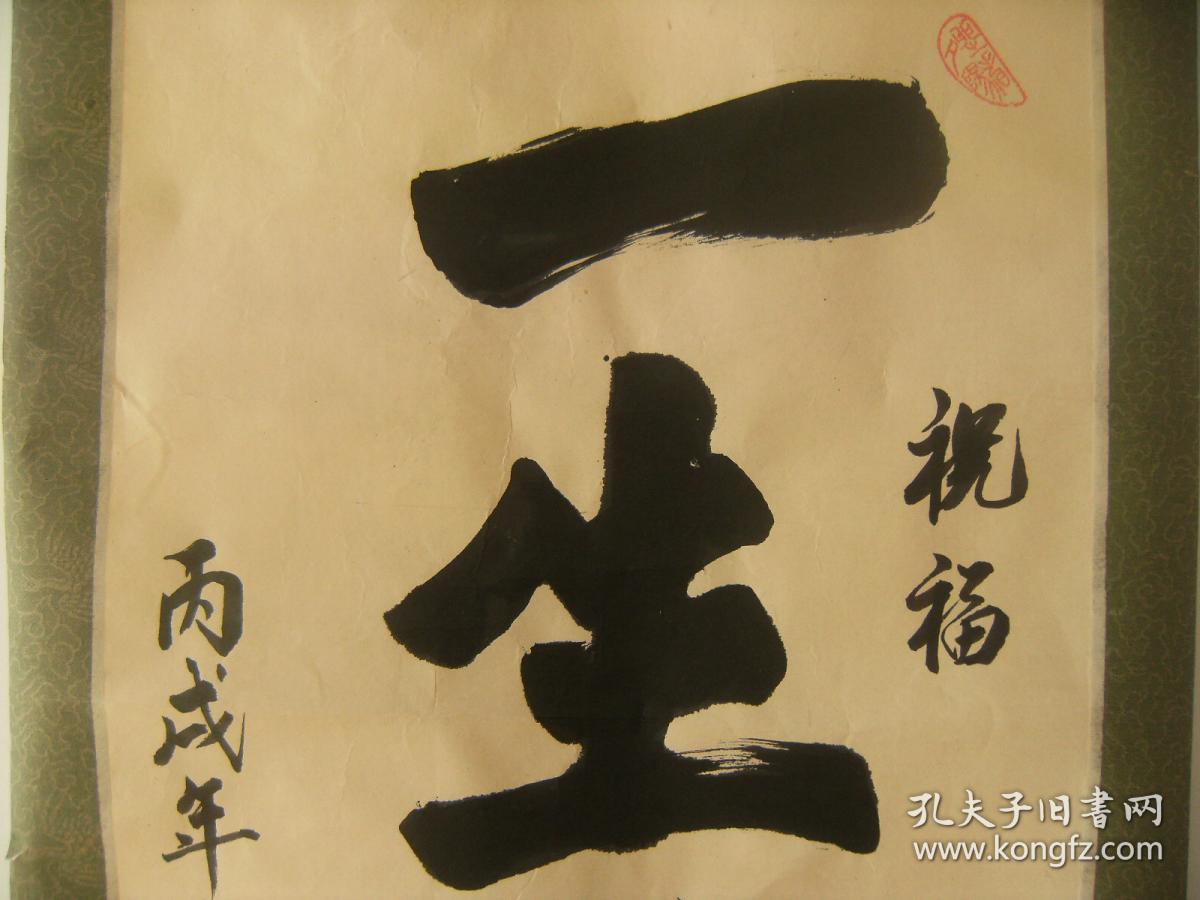 祝福
一生
丙戌年
孔夫子旧書网
www.kongfz.com